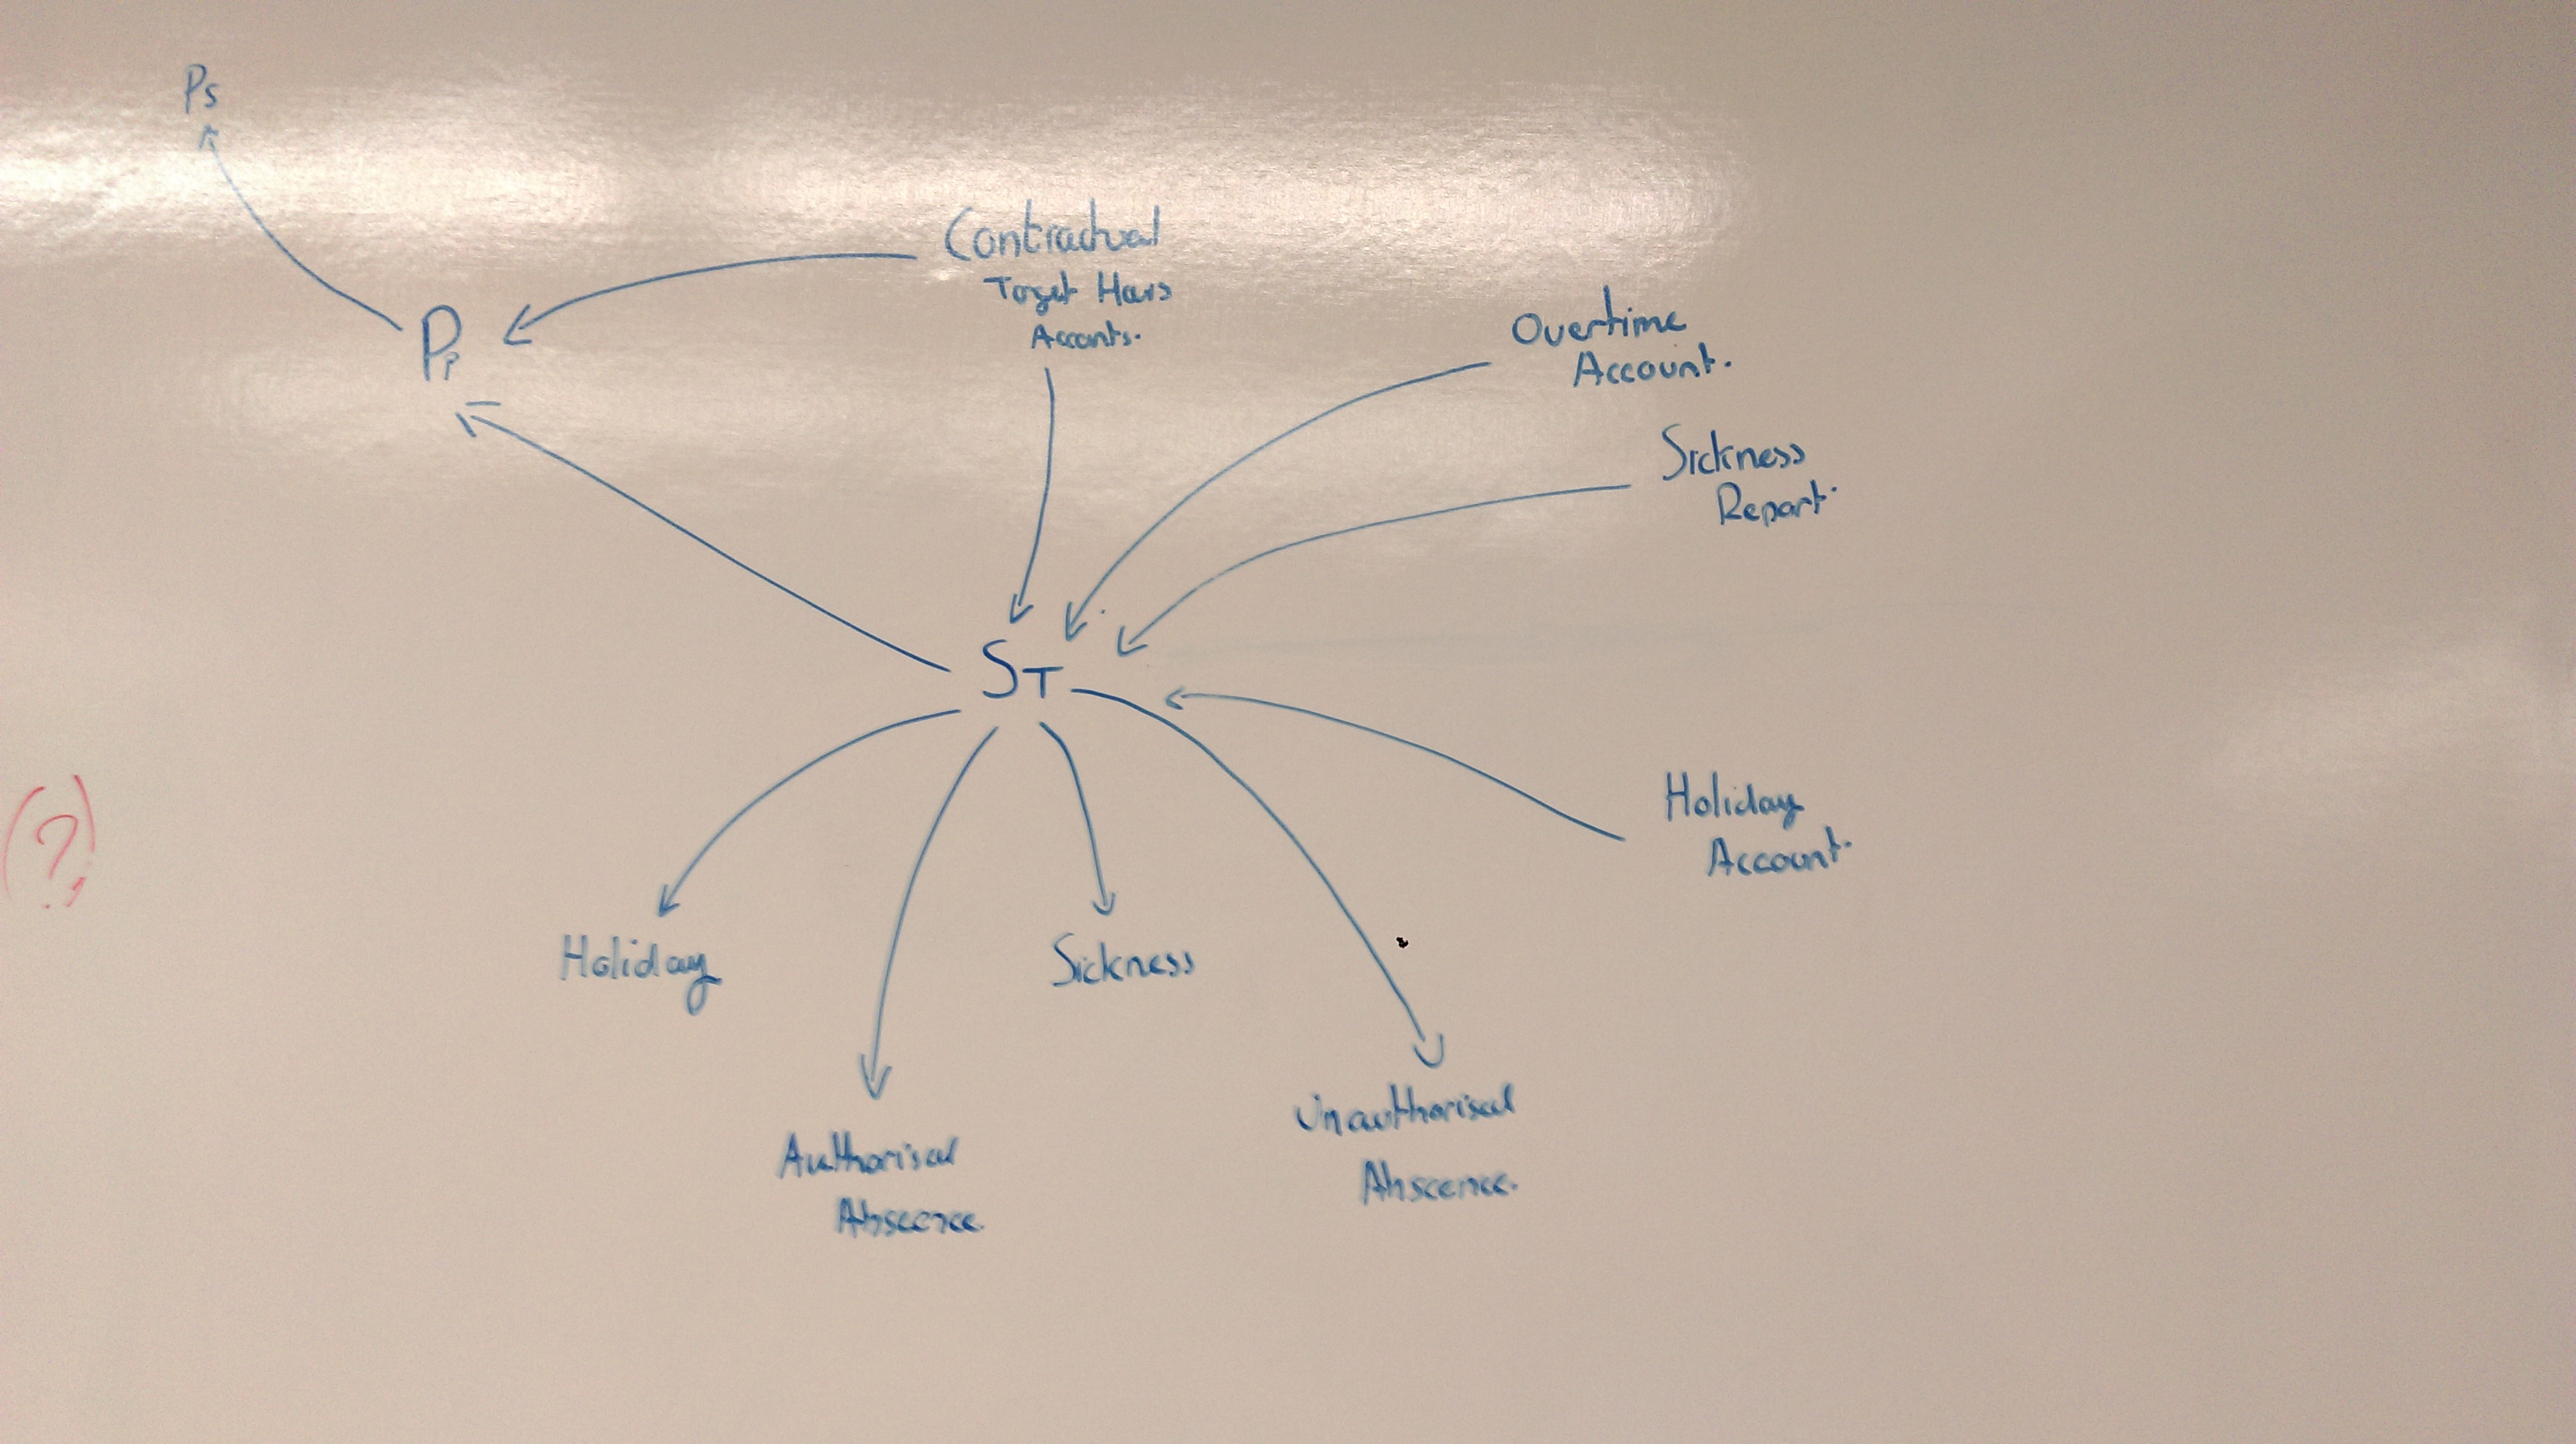 Ps
Contractual
Target Hours
Accounts.
Pp
Overtime
Account.
Sickness
Report.
ST
Holiday
Account.
(?)
Holiday
Sickness
Authorised
Abscence.
Unauthorised
Abscence.